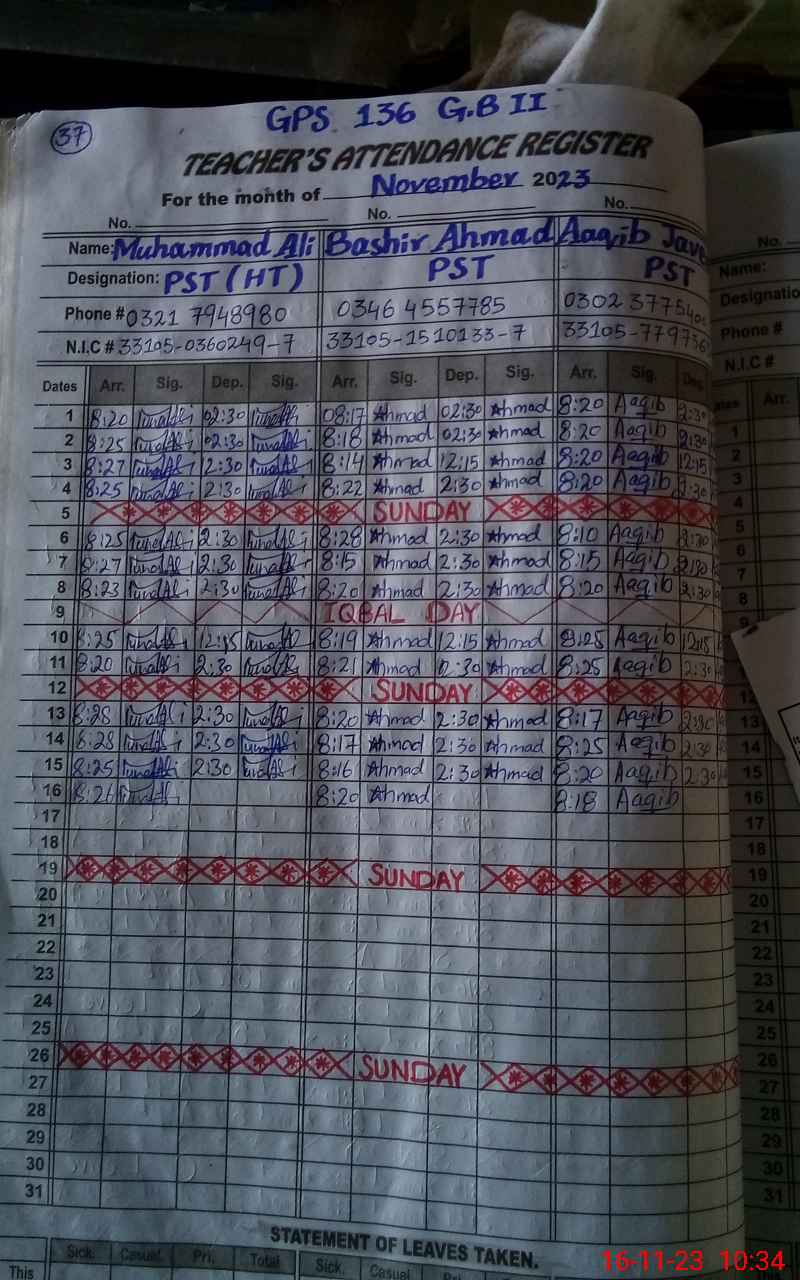 GPS 136 G.B II
37
TEACHER'S ATTENDANCE REGISTER
For the month of November 2023
No. No. No.
Name: Muhammad Ali Bashir Ahmad Aaqib Jave
Designation: PST (HT) PST PST
Phone # 0321 7948980 0346 4557785 0302 37754
N.I.C # 33105-0360249-7 33105-1510133-7 33105-779736
Dates Arr. Sig. Dep. Sig. Arr. Sig. Dep. Sig. Arr. Sig. Dep.
1 8:20 02:30 08:17 Ahmad 02:30 Ahmad 8:20 Aaqib 2:30
2 8:25 02:30 8:18 Ahmad 02:30 Ahmad 8:20 Aaqib 2:30
3 8:27 2:30 8:14 Ahmad 12:15 Ahmad 8:20 Aaqib 12:15
4 8:25 2:30 8:22 Ahmad 2:30 Ahmad 8:20 Aaqib 2:30
5 SUNDAY
6 8:25 2:30 8:28 Ahmad 2:30 Ahmad 8:10 Aaqib 2:30
7 8:27 2:30 8:15 Ahmad 2:30 Ahmad 8:15 Aaqib 2:30
8 8:23 2:30 8:20 Ahmad 2:30 Ahmad 8:20 Aaqib 2:30
9 IQBAL DAY
10 8:25 12:15 8:19 Ahmad 12:15 Ahmad 8:25 Aaqib 12:15
11 8:20 2:30 8:21 Ahmad 2:30 Ahmad 8:25 Aaqib 2:30
12 SUNDAY
13 8:28 2:30 8:20 Ahmad 2:30 Ahmad 8:17 Aaqib 2:30
14 8:28 2:30 8:17 Ahmad 2:30 Ahmad 8:25 Aaqib 2:30
15 8:25 2:30 8:16 Ahmad 2:30 Ahmad 8:20 Aaqib 2:30
16 8:26 8:20 Ahmad 8:18 Aaqib
17
18
19 SUNDAY
20
21
22
23
24
25
26 SUNDAY
27
28
29
30
31
STATEMENT OF LEAVES TAKEN.
Sick. Casual. Pri. Total Sick. Casual
This
No.
Name:
Designatio
Phone #
N.I.C #
Arr.
1
2
3
4
5
6
7
8
9
12
13
14
15
16
17
18
19
20
21
22
23
24
25
26
27
28
29
30
31
16-11-23 10:34